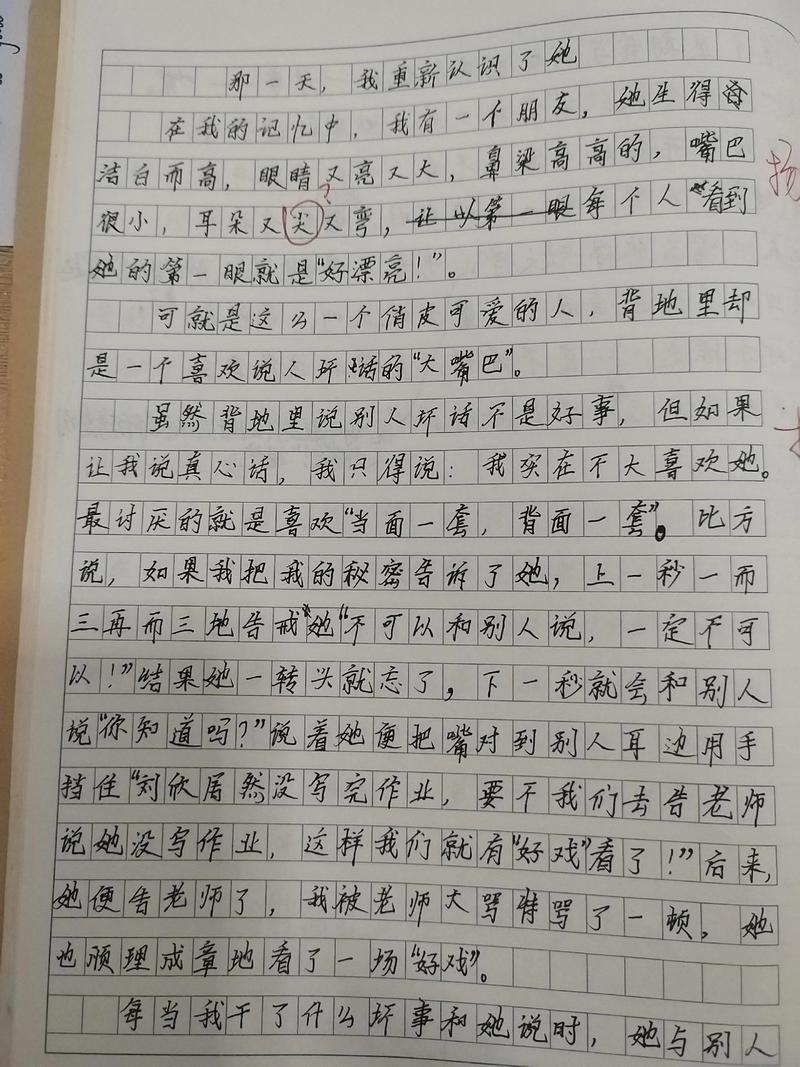 那一天，我重新认识了她
在我的记忆中，我有一个朋友，她生得
洁白而高，眼睛又亮又大，鼻梁高高的，嘴巴
很小，耳朵又尖又弯，让以第一眼每个人看到
？
她的第一眼就是“好漂亮！”。
可就是这么一个俏皮可爱的人，背地里却
是一个喜欢说人坏话的“大嘴巴”。
虽然背地里说别人坏话不是好事，但如果
让我说真心话，我只得说：我实在不大喜欢她。
最讨厌的就是喜欢“当面一套，背面一套”。比方
说，如果我把我的秘密告诉了她，上一秒一而
三再而三地告戒她“不可以和别人说，一定不可
以！”结果她一转头就忘了，下一秒就会和别人
说“你知道吗？”说着她便把嘴对到别人耳边用手
挡住“刘欣居然没写完作业，要不我们去告老师
说她没写作业，这样我们就有“好戏”看了！”后来，
她便告老师了，我被老师大骂特骂了一顿，她
也顺理成章地看了一场“好戏”。
每当我干了什么坏事和她说时，她与别人